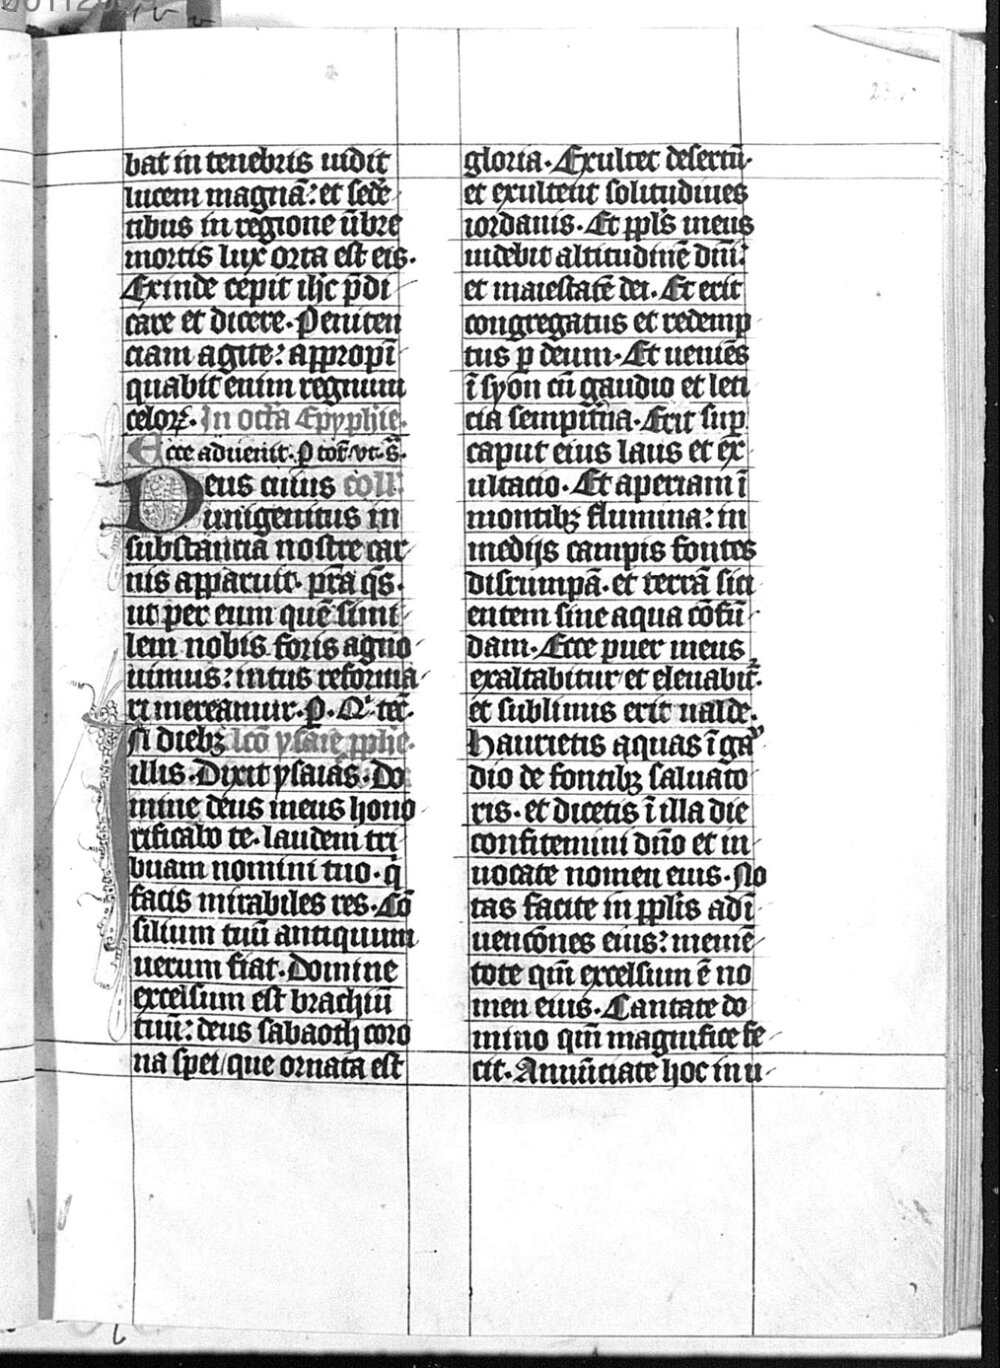 bat in tenebris uidit
lucem magnā: et sedē
tibus in regione ūbre
mortis lux orta est eis.
Exinde cepit ihc p̄di
care et dicere. Peniten
ciam agite: appropī
quabit enim regnum
celoꝝ. In octa Epyphie.
Ecce aduenit. P tot̄ vt. s̄.
Deus cuius coll.
unigenitus in
substancia nostre car
nis apparuit. pr̄a q̄s.
ut per eum quē simi
lem nobis foris agno
uimus: intus reforma
ri mereamur. P.
In diebꝫ lc̄o ysaie pph̄e.
illis. Dixit ysaias. Do
mine deus meus hono
rificabo te. laudem tri
buam nomini tuo. q̄
facis mirabiles res. Cō
silium tuū antiquum
uerum fiat. Domine
excelsum est brachiū
tuū: deus sabaoth coro
na spei / que ornata est
gloria. Exultet desertū.
et exultent solitudines
iordanis. Et ppl̄s meus
uidebit altitudinē dn̄i:
et maiestatē dei. Et erit
congregatus et redemp
tus ꝑ deum. Et ueniēs
ī syon cū gaudio et leti
cia sempit̄na. Erit suꝑ
caput eius laus et ex
ultacio. Et aperiam ī
montibꝫ flumina: in
medijs campis fontes
disrumpā. et terrā siti
entem sine aqua cōfū
dam. Ecce puer meus
exaltabitur et eleuabit̄.
et sublimis erit ualde.
Haurietis aquas ī gau
dio de fontibꝫ saluato
ris. et dicetis ī illa die
confitemini dn̄o et in
uocate nomen eius. No
tas facite in ppl̄is adī
uencōnes eius: memē
tote qm̄ excelsum ē no
men eius. Cantate do
mino qm̄ magnifice fe
cit. Annūciate hoc in u